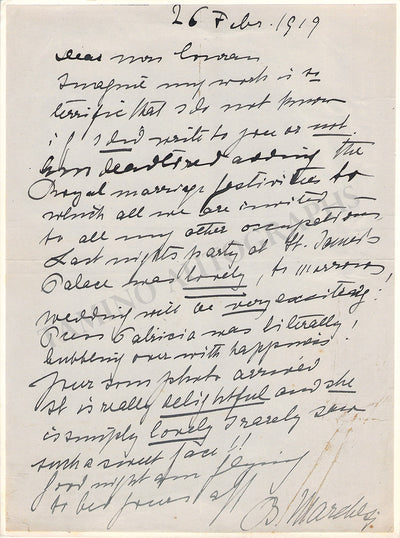 26 Febr. 1919
Dear mon
Imagine my work is so
terrific that I do not know
if I did write to you or not.
Am dead tired adding the
Royal marriage festivities to
which all we are invited
to all my other occupations
Last nights party at St. James's
Palace was lovely, to morrows
wedding will be very exciting!
Pcess Patricia was literally
bubbling over with happiness!
Your photo arrived
It is really delightful and she
is simply lovely I rarely saw
such a sweet face!!
Good night am flying
to bed yours aff
B. Marchesi
TAMINO AUTOGRAPHS